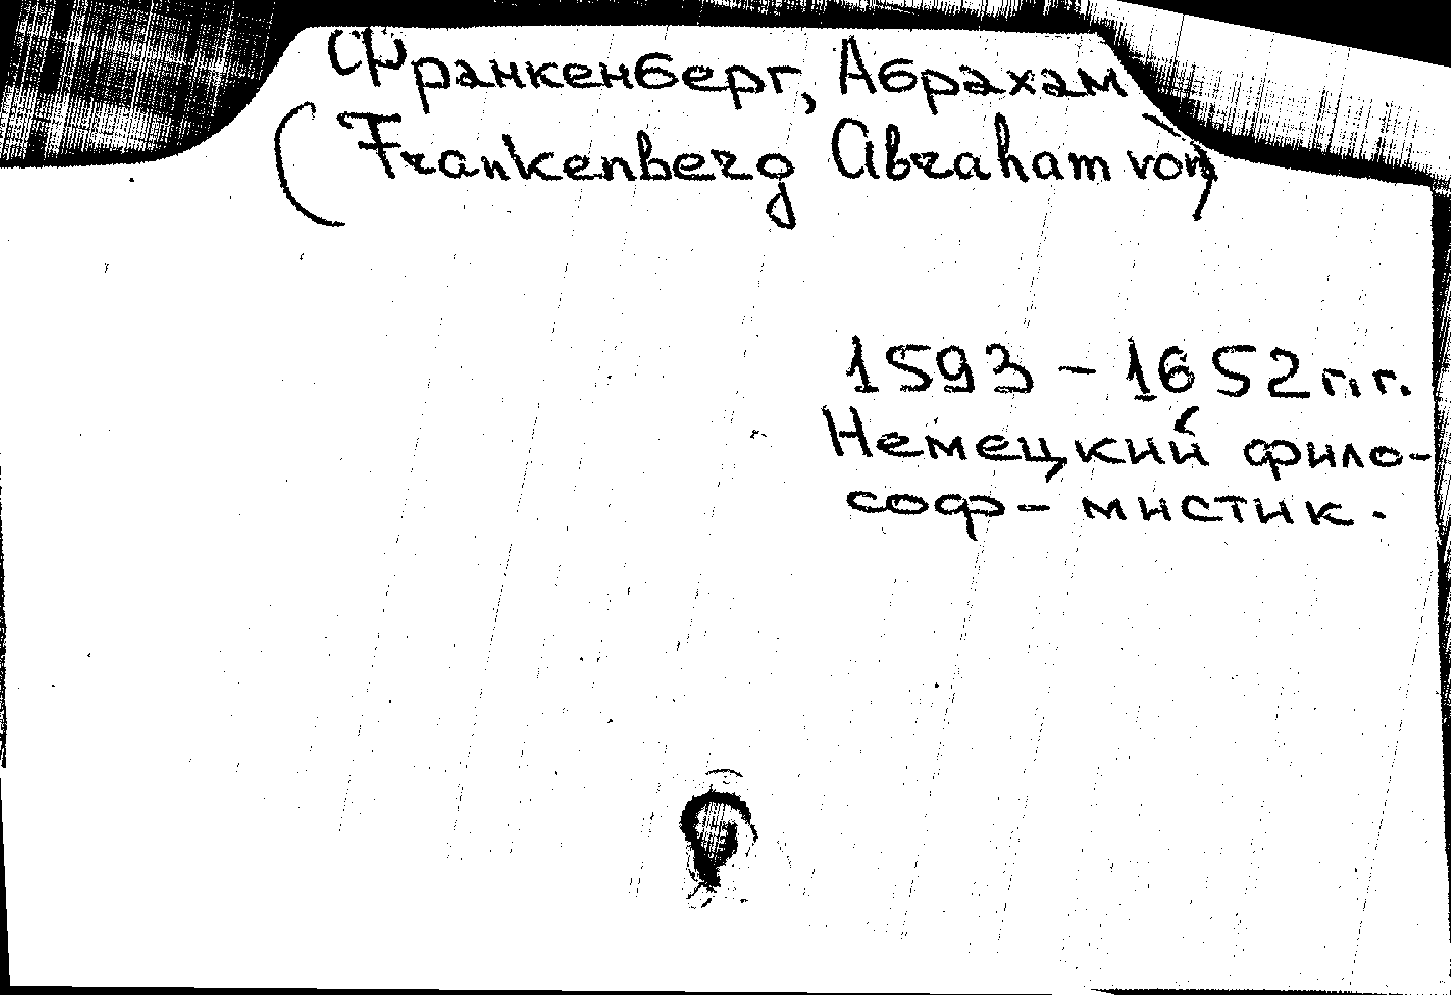 Франкенберг, Абрахам
(Frankenberg Abraham von)
1593 – 1652 г.г.
Немецкий фило-
соф – мистик.